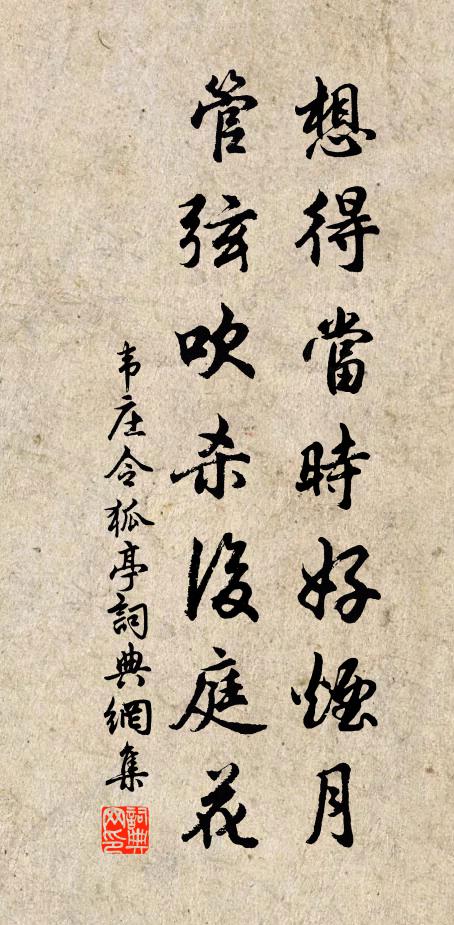 想得當時好煙月
管弦吹杀後庭花
韦庄令狐亭詞典網集
詞典
网印